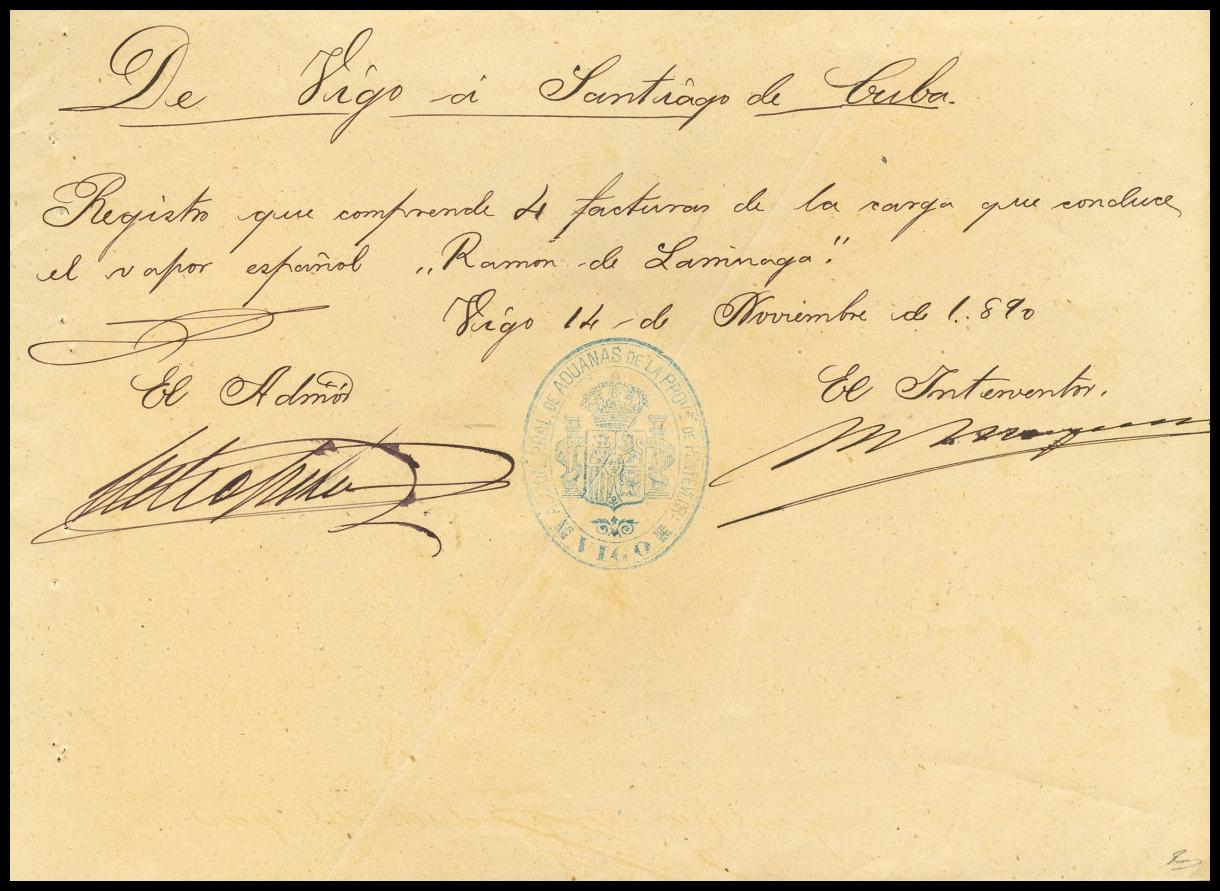 De Vigo á Santiago de Cuba.
Registro que comprende 4 facturas de la carga que conduce
el vapor español „Ramón de Larrinaga".
Vigo 14 de Noviembre de 1.890
El Admõr
El Interventor.
PRAL DE ADUANAS DE LA PROVª DE PONTEVEDRA
VIGO